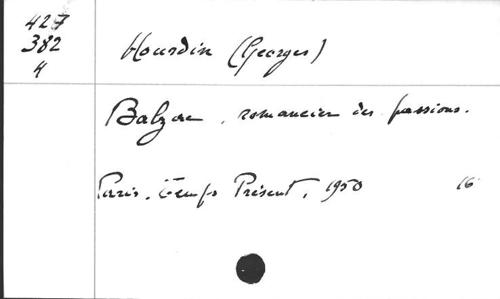 427
382
4
Hourdin (Georges)
Balzac, romancier des passions.
Paris. Temps Présent, 1950 16